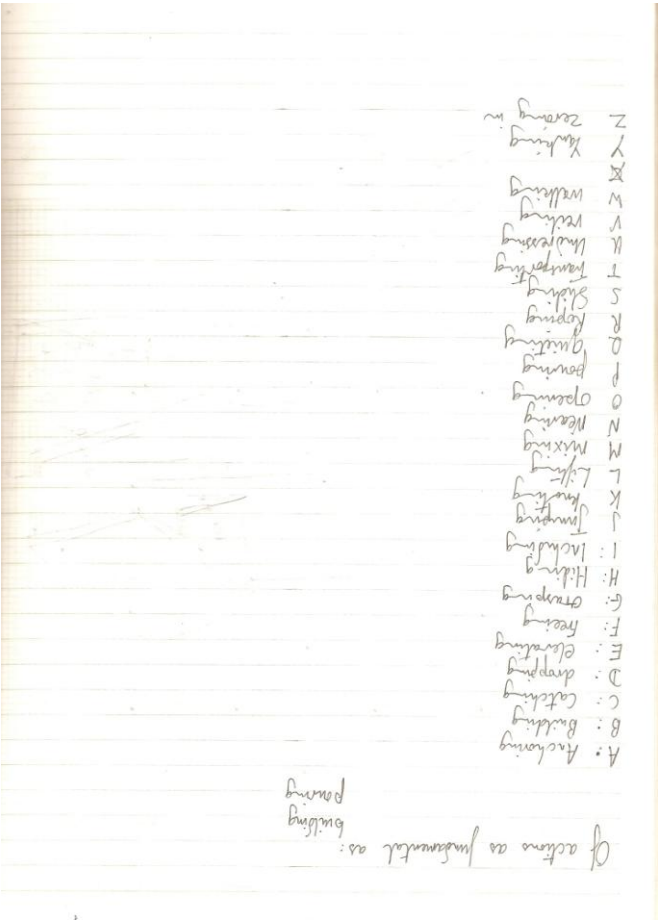 Of actions as fundamental as:
building
pouring
A: Anchoring
B: Building
C: Catching
D: dropping
E: elevating
F: freeing
G: Grasping
H: Hiding
I: Including
J Jumping
K knotting
L Lifting
M Mixing
N Nearing
O Opening
P pouring
Q quieting
R Roping
S Sliding
T Transporting
U Undressing
V veiling
W walking
X
Y Yanking
Z zeroing in